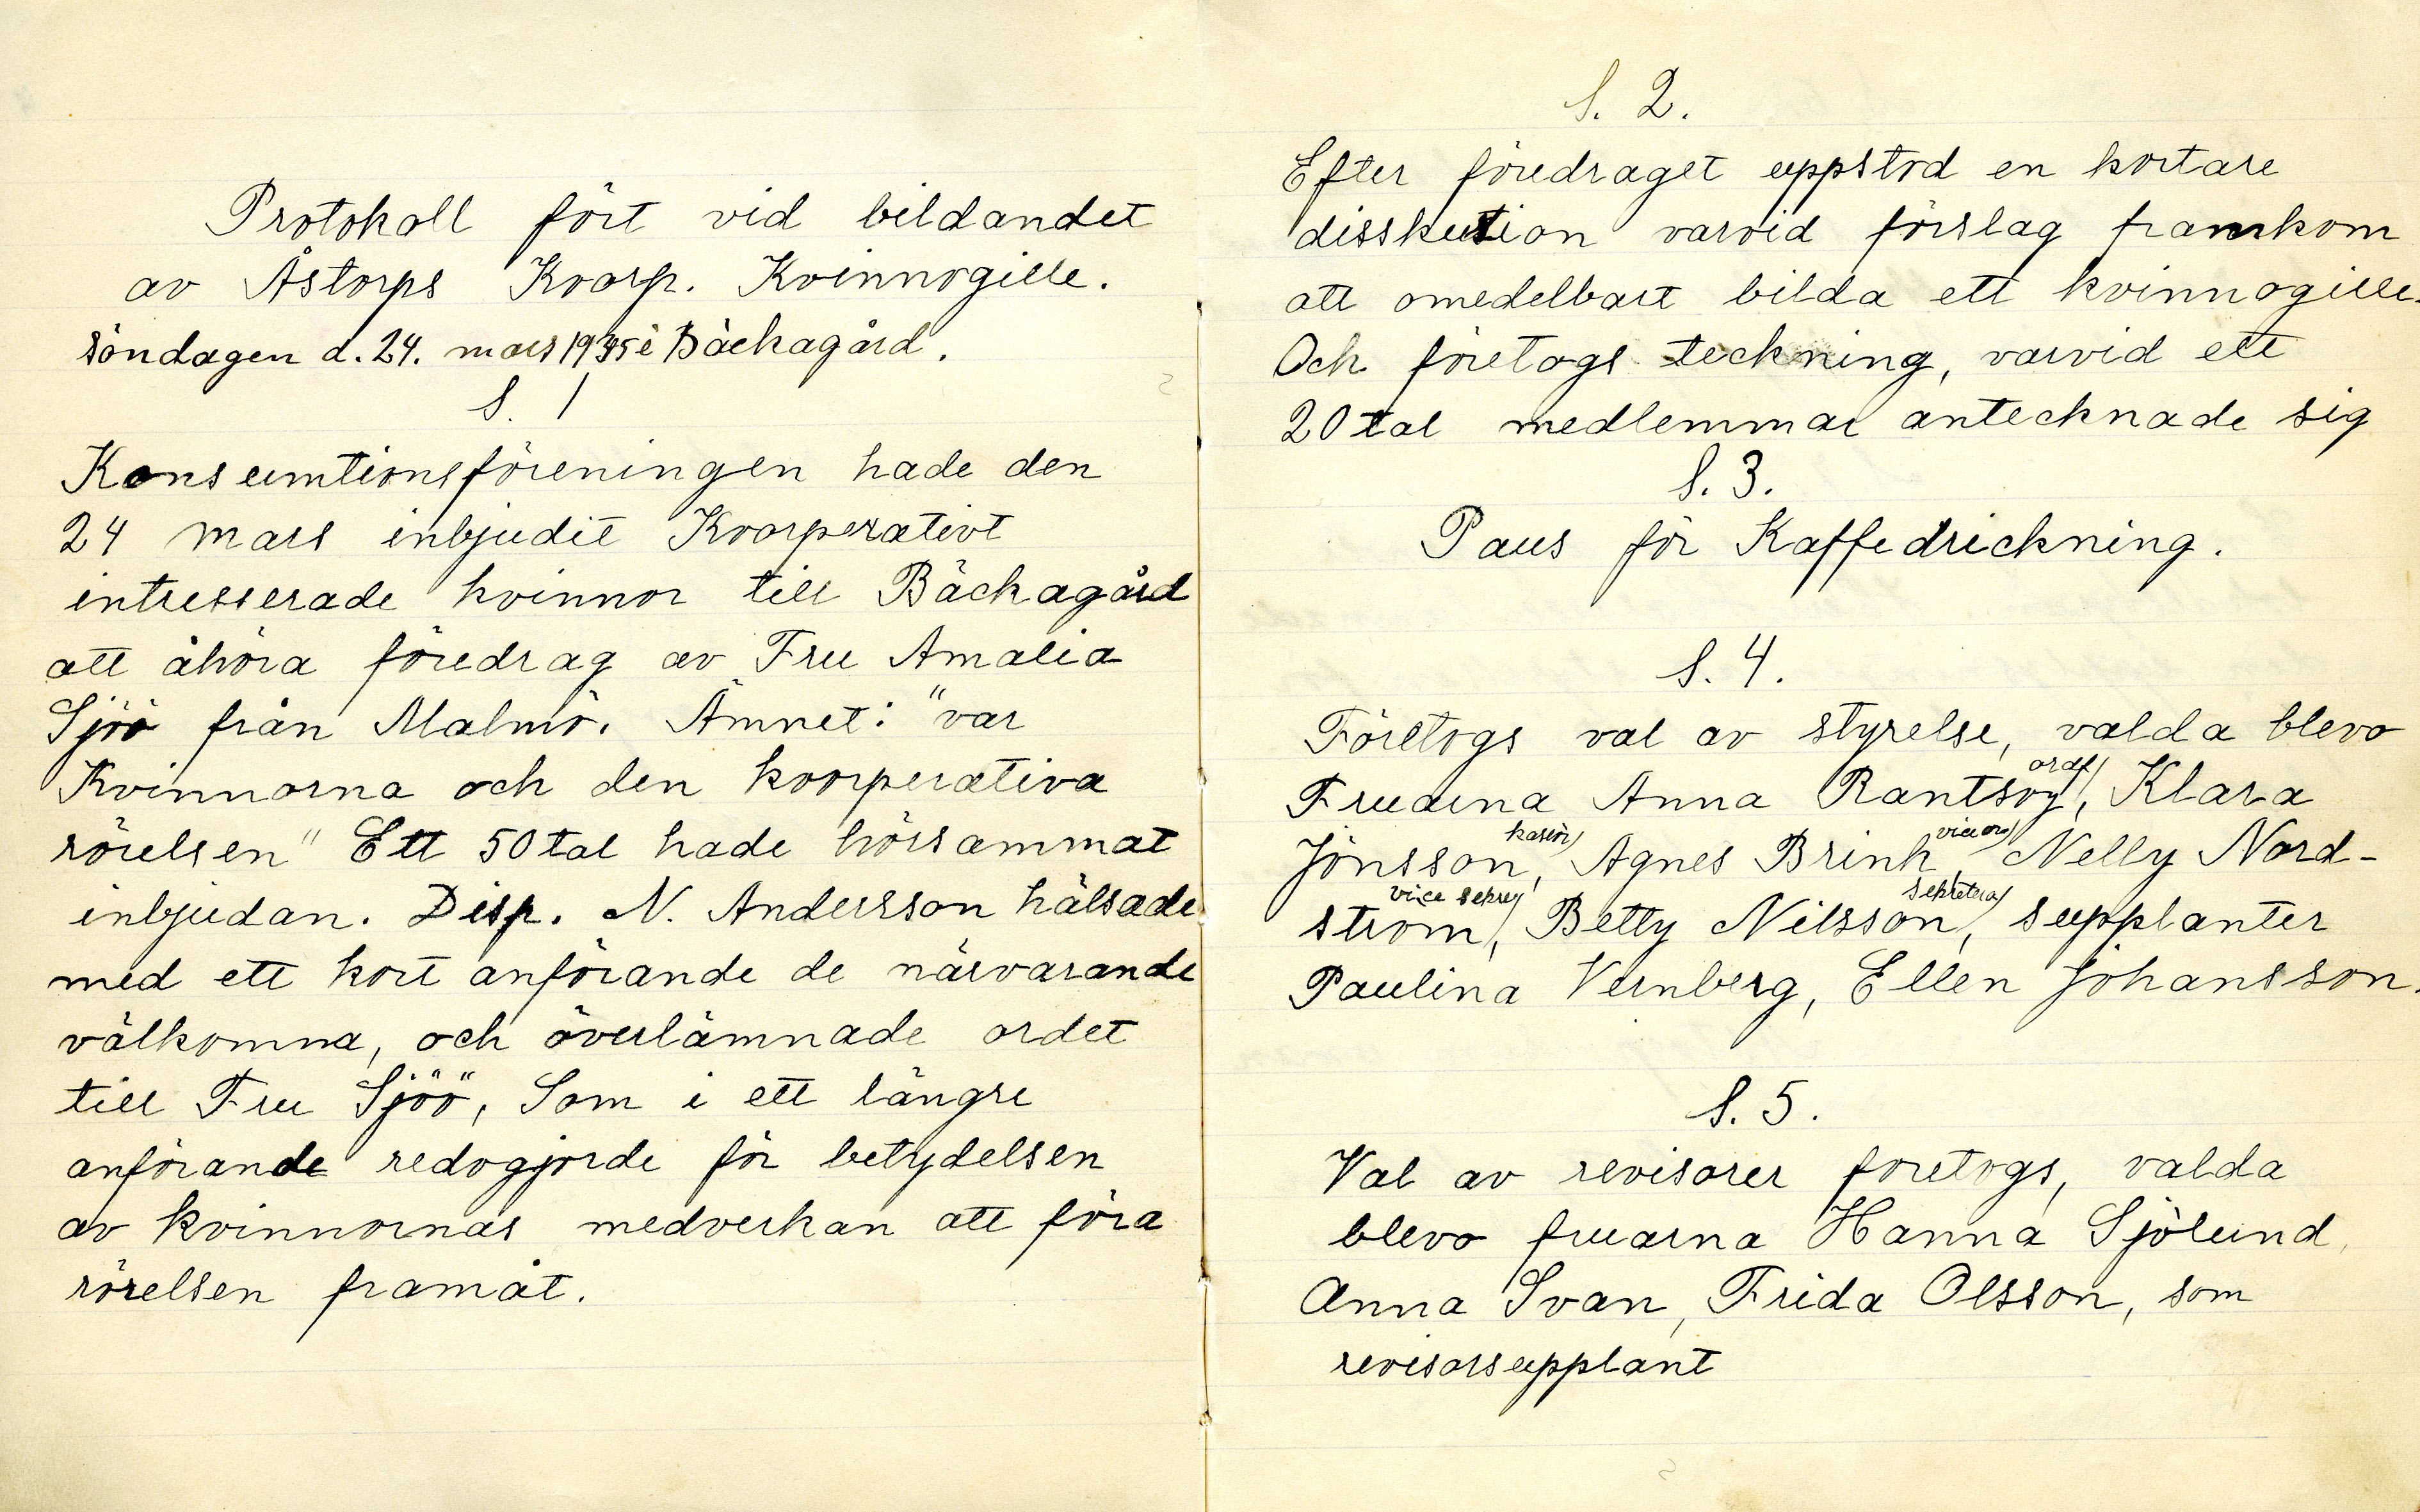 Protokoll fört vid bildandet
av Åstorps Koorp. Kvinnogille.
söndagen d. 24. mars 1935 i Bäckagård.
§. 1
Konsumtionsföreningen hade den
24 mars inbjudit Kooperativt
intresserade kvinnor till Bäckagård
att åhöra föredrag av Fru Amalia
Sjöö från Malmö. Ämnet: "var
Kvinnorna och den kooperativa
rörelsen" Ett 50tal hade hörsammat
inbjudan. Disp. N. Andersson hälsade
med ett kort anförande de närvarande
välkomna, och överlämnade ordet
till Fru Sjöö, Som i ett längre
anförande redogjorde för betydelsen
av kvinnornas medverkan att föra
rörelsen framåt.
§. 2.
Efter föredraget uppstod en kortare
disskution varvid förslag framkom
att omedelbart bilda ett kvinnogille.
Och företogs teckning, varvid ett
20tal medlemmar antecknade sig
§. 3.
Paus för Kaffedrickning.
§. 4.
Företogs val av styrelse, valda blevo
ordf/
Fruarna Anna Rantsoy, Klara
kasör/ vice or/
Jönsson, Agnes Brink Nelly Nord-
vice sekre/ sekretera/
strom, Betty Nilsson, supplanter
Paulina Vernberg, Ellen Johansson.
§. 5.
Val av revisorer foretogs, valda
blevo fruarna Hanna Sjölund,
Anna Svan, Frida Olsson, som
revisorsupplant